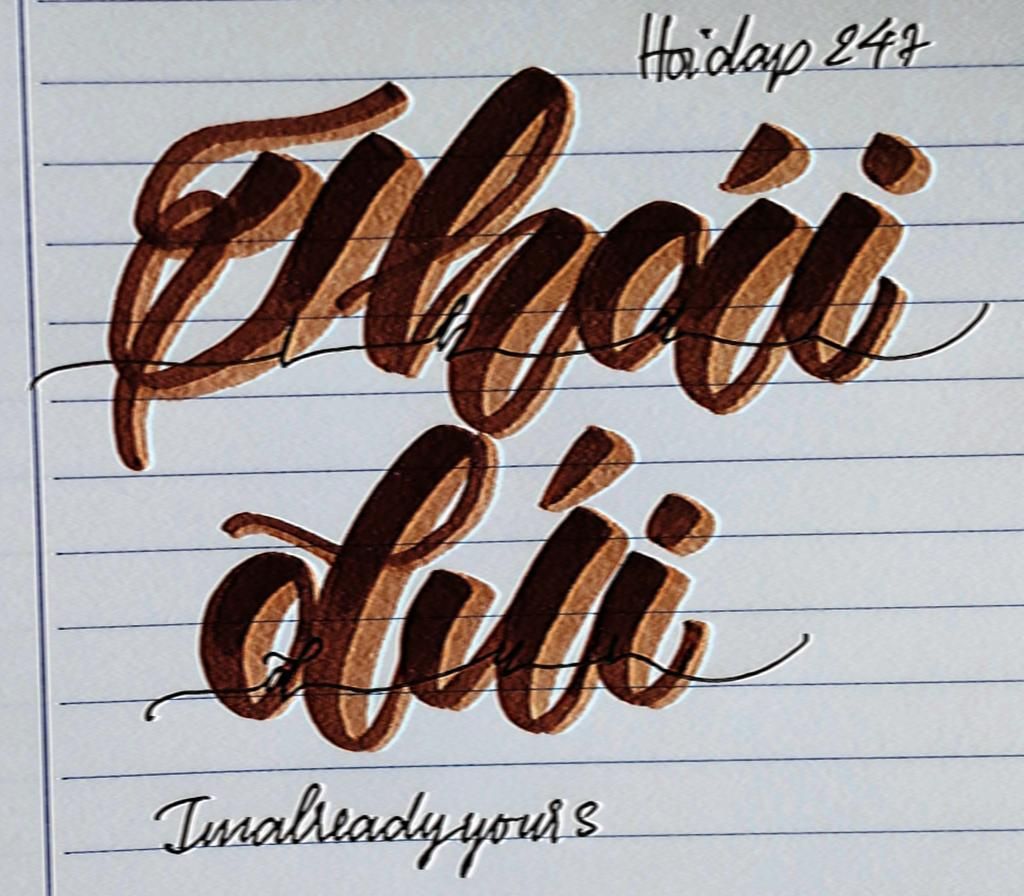 Hoidap 247
Thái
dúi
Imalreadyyours